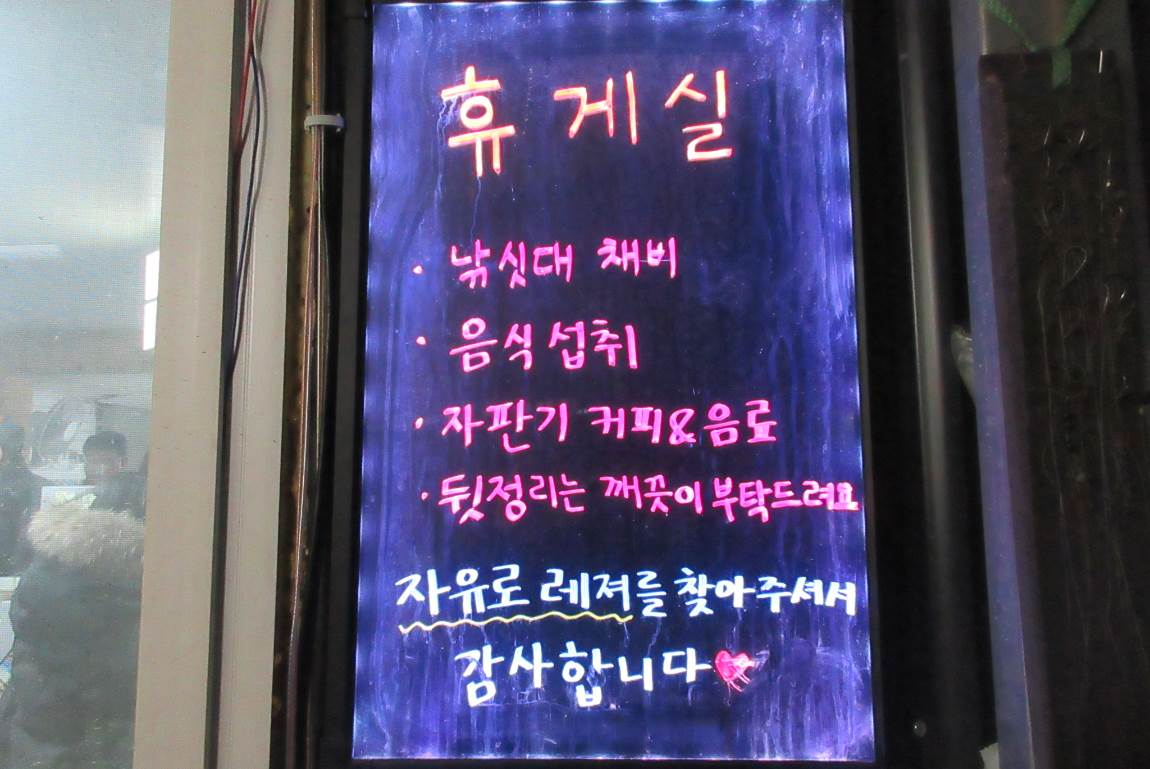 휴게실
· 낚싯대 채비
· 음식 섭취
· 자판기 커피&음료
· 뒷정리는 깨끗이 부탁드려요
자유로 레져를 찾아주셔서
감사합니다